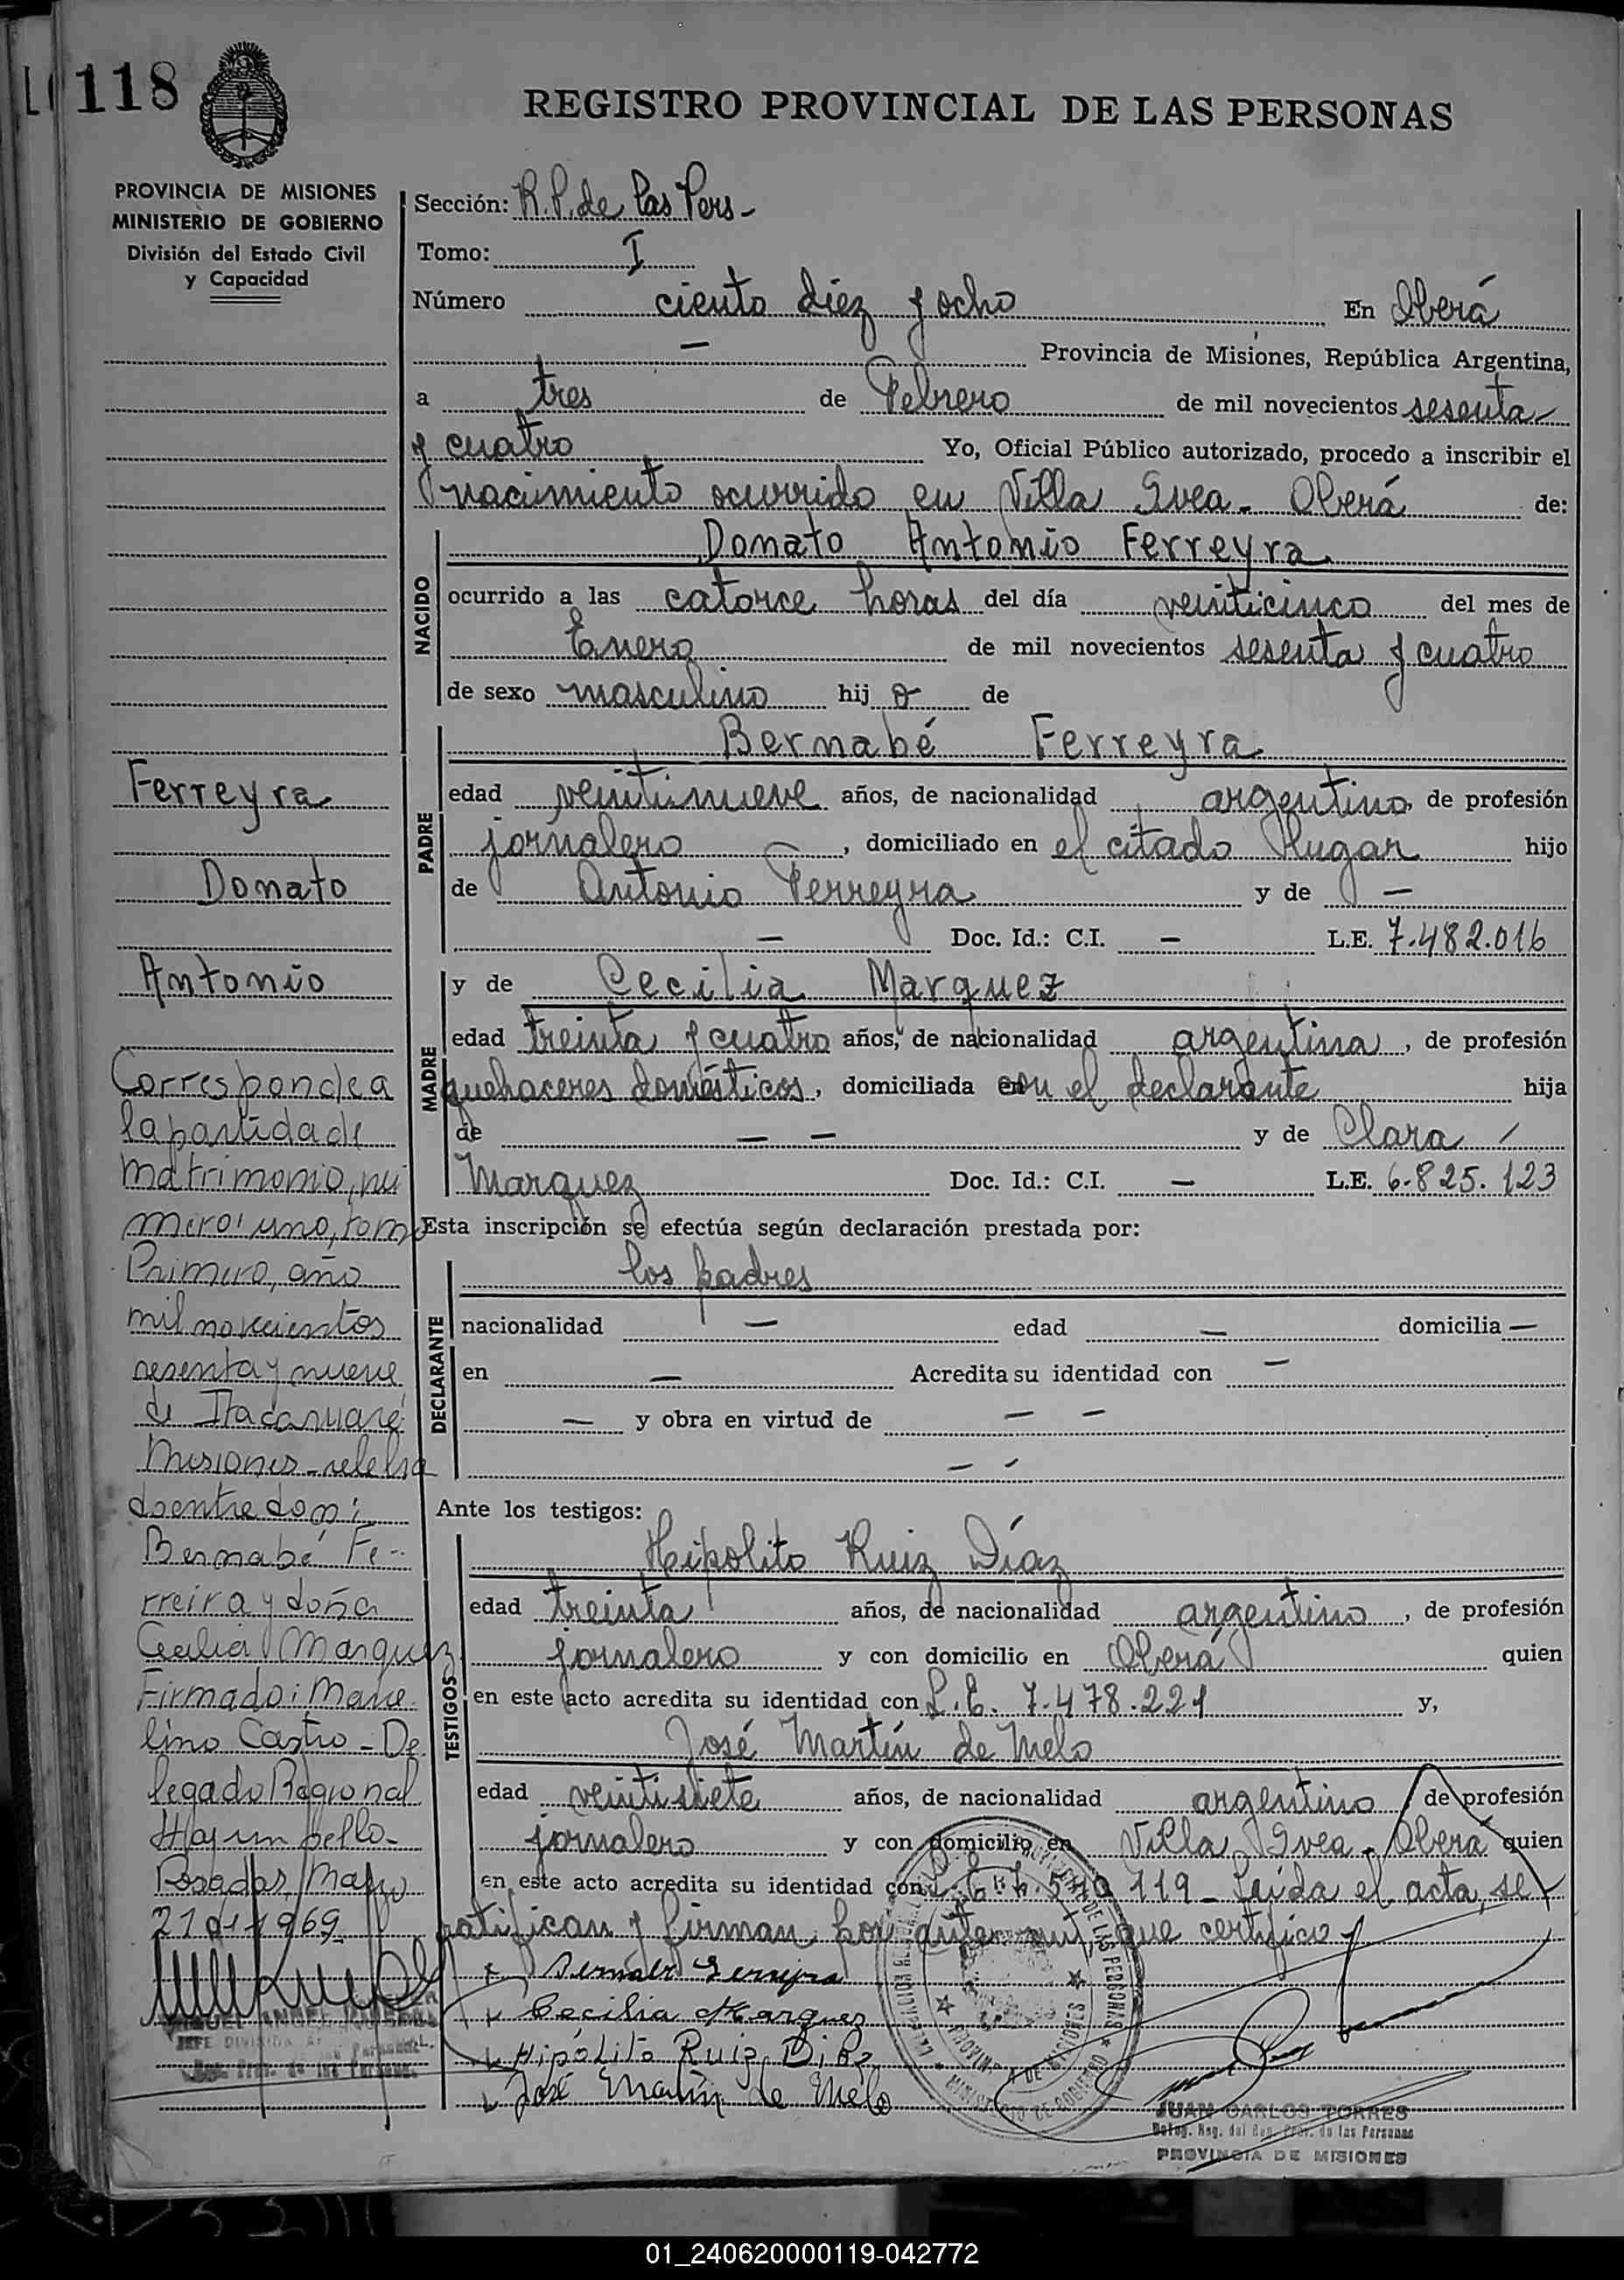 118
REGISTRO PROVINCIAL DE LAS PERSONAS
PROVINCIA DE MISIONES
MINISTERIO DE GOBIERNO
División del Estado Civil
y Capacidad
Sección: R.P. de las Pers-
Tomo: I
Número ciento diez y ocho En Oberá
— Provincia de Misiones, República Argentina,
a tres de Febrero de mil novecientos sesenta
y cuatro Yo, Oficial Público autorizado, procedo a inscribir el
nacimiento ocurrido en Villa Svea - Oberá de:
NACIDO
Donato Antonio Ferreyra
ocurrido a las catorce horas del día veinticinco del mes de
Enero de mil novecientos sesenta y cuatro
de sexo masculino hij o de
PADRE
Bernabé Ferreyra
edad veintinueve años, de nacionalidad argentino, de profesión
jornalero, domiciliado en el citado lugar hijo
de Antonio Ferreyra y de —
— Doc. Id.: C.I. — L.E. 7.482.016
MADRE
y de Cecilia Marquez
edad treinta y cuatro años, de nacionalidad argentina, de profesión
quehaceres domésticos, domiciliada con el declarante hija
de — — y de Clara
Marquez Doc. Id.: C.I. — L.E. 6.825.123
Esta inscripción se efectúa según declaración prestada por:
DECLARANTE
los padres
nacionalidad — edad — domicilia —
en — Acredita su identidad con —
— y obra en virtud de — —
— -
Ante los testigos:
TESTIGOS
Hipolito Ruiz Díaz
edad treinta años, de nacionalidad argentino, de profesión
jornalero y con domicilio en Oberá quien
en este acto acredita su identidad con L.E. 7.478.221 y,
José Martín de Melo
edad veintisiete años, de nacionalidad argentino de profesión
jornalero y con domicilio en Villa Svea - Oberá quien
en este acto acredita su identidad con L.E. 119 - Leída el acta, se
ratifican y firman por ante mí, que certifico
Cecilia Marquez
Hipólito Ruiz Diaz
José Martin de Melo
JUAN CARLOS TORRES
Deleg. Reg. del Reg. Prov. de las Personas
PROVINCIA DE MISIONES
Ferreyra
Donato
Antonio
Corresponde a
la partida de
matrimonio, nú
mero: uno, tomo
Primero, año
mil novecientos
sesenta y nueve
de Itacaruaré
Misiones - celebra
do entre don:
Bernabé Fe-
rreira y doña
Cecilia Marquez
Firmado: Marce
lino Castro - De
legado Regional
Hay un sello -
Posadas, Mayo
21 de 1969
JEFE DIVISION
Reg. Prov. de las Personas
01_240620000119-042772